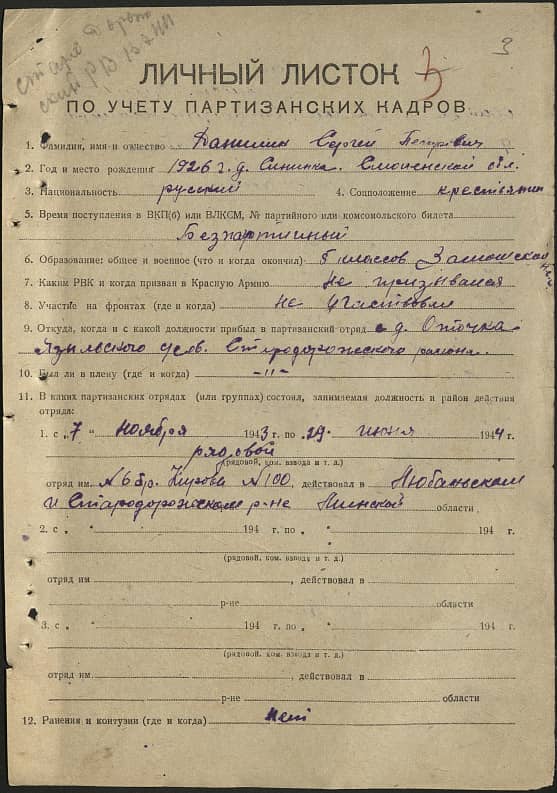 3
Старо Дорож
ским РВ
ЛИЧНЫЙ ЛИСТОК 3
ПО УЧЕТУ ПАРТИЗАНСКИХ КАДРОВ
1. Фамилия, имя и отчество Данилин Сергей Петрович
2. Год и место рождения 1926 г. д. Сининка. Смоленской обл.
3. Национальность русский 4. Соцположение крестьянин
5. Время поступления в ВКП(б) или ВЛКСМ, № партийного или комсомольского билета
Безпартийный
6. Образование: общее и военное (что и когда окончил) классов
7. Каким РВК и когда призван в Красную Армию не призывался
8. Участие на фронтах (где и когда) не участвовал
9. Откуда, когда и с какой должности прибыл в партизанский отряд с д. Оточка
Языльского с/сов. Стародорожского района.
10. Был ли в плену (где и когда) -"-
11. В каких партизанских отрядах (или группах) состоял, занимаемая должность и район действия
отряда:
1. с „7" ноября 1943 г. по „29" июня 1944 г.
рядовой
(рядовой, ком. взвода и т. д.)
отряд им. №6 бр. Кирова №100, действовал в Любаньском
и Стародорожском р-не Минской области
2. с „ " 194 г. по „ " 194 г.
(рядовой, ком. взвода и т. д.)
отряд им , действовал в
р-не области
3. с „ " 194 г. по „ " 194 г.
(рядовой, ком. взвода и т. д.)
отряд им. , действовал в
р-не области
12. Ранения и контузии (где и когда) нет